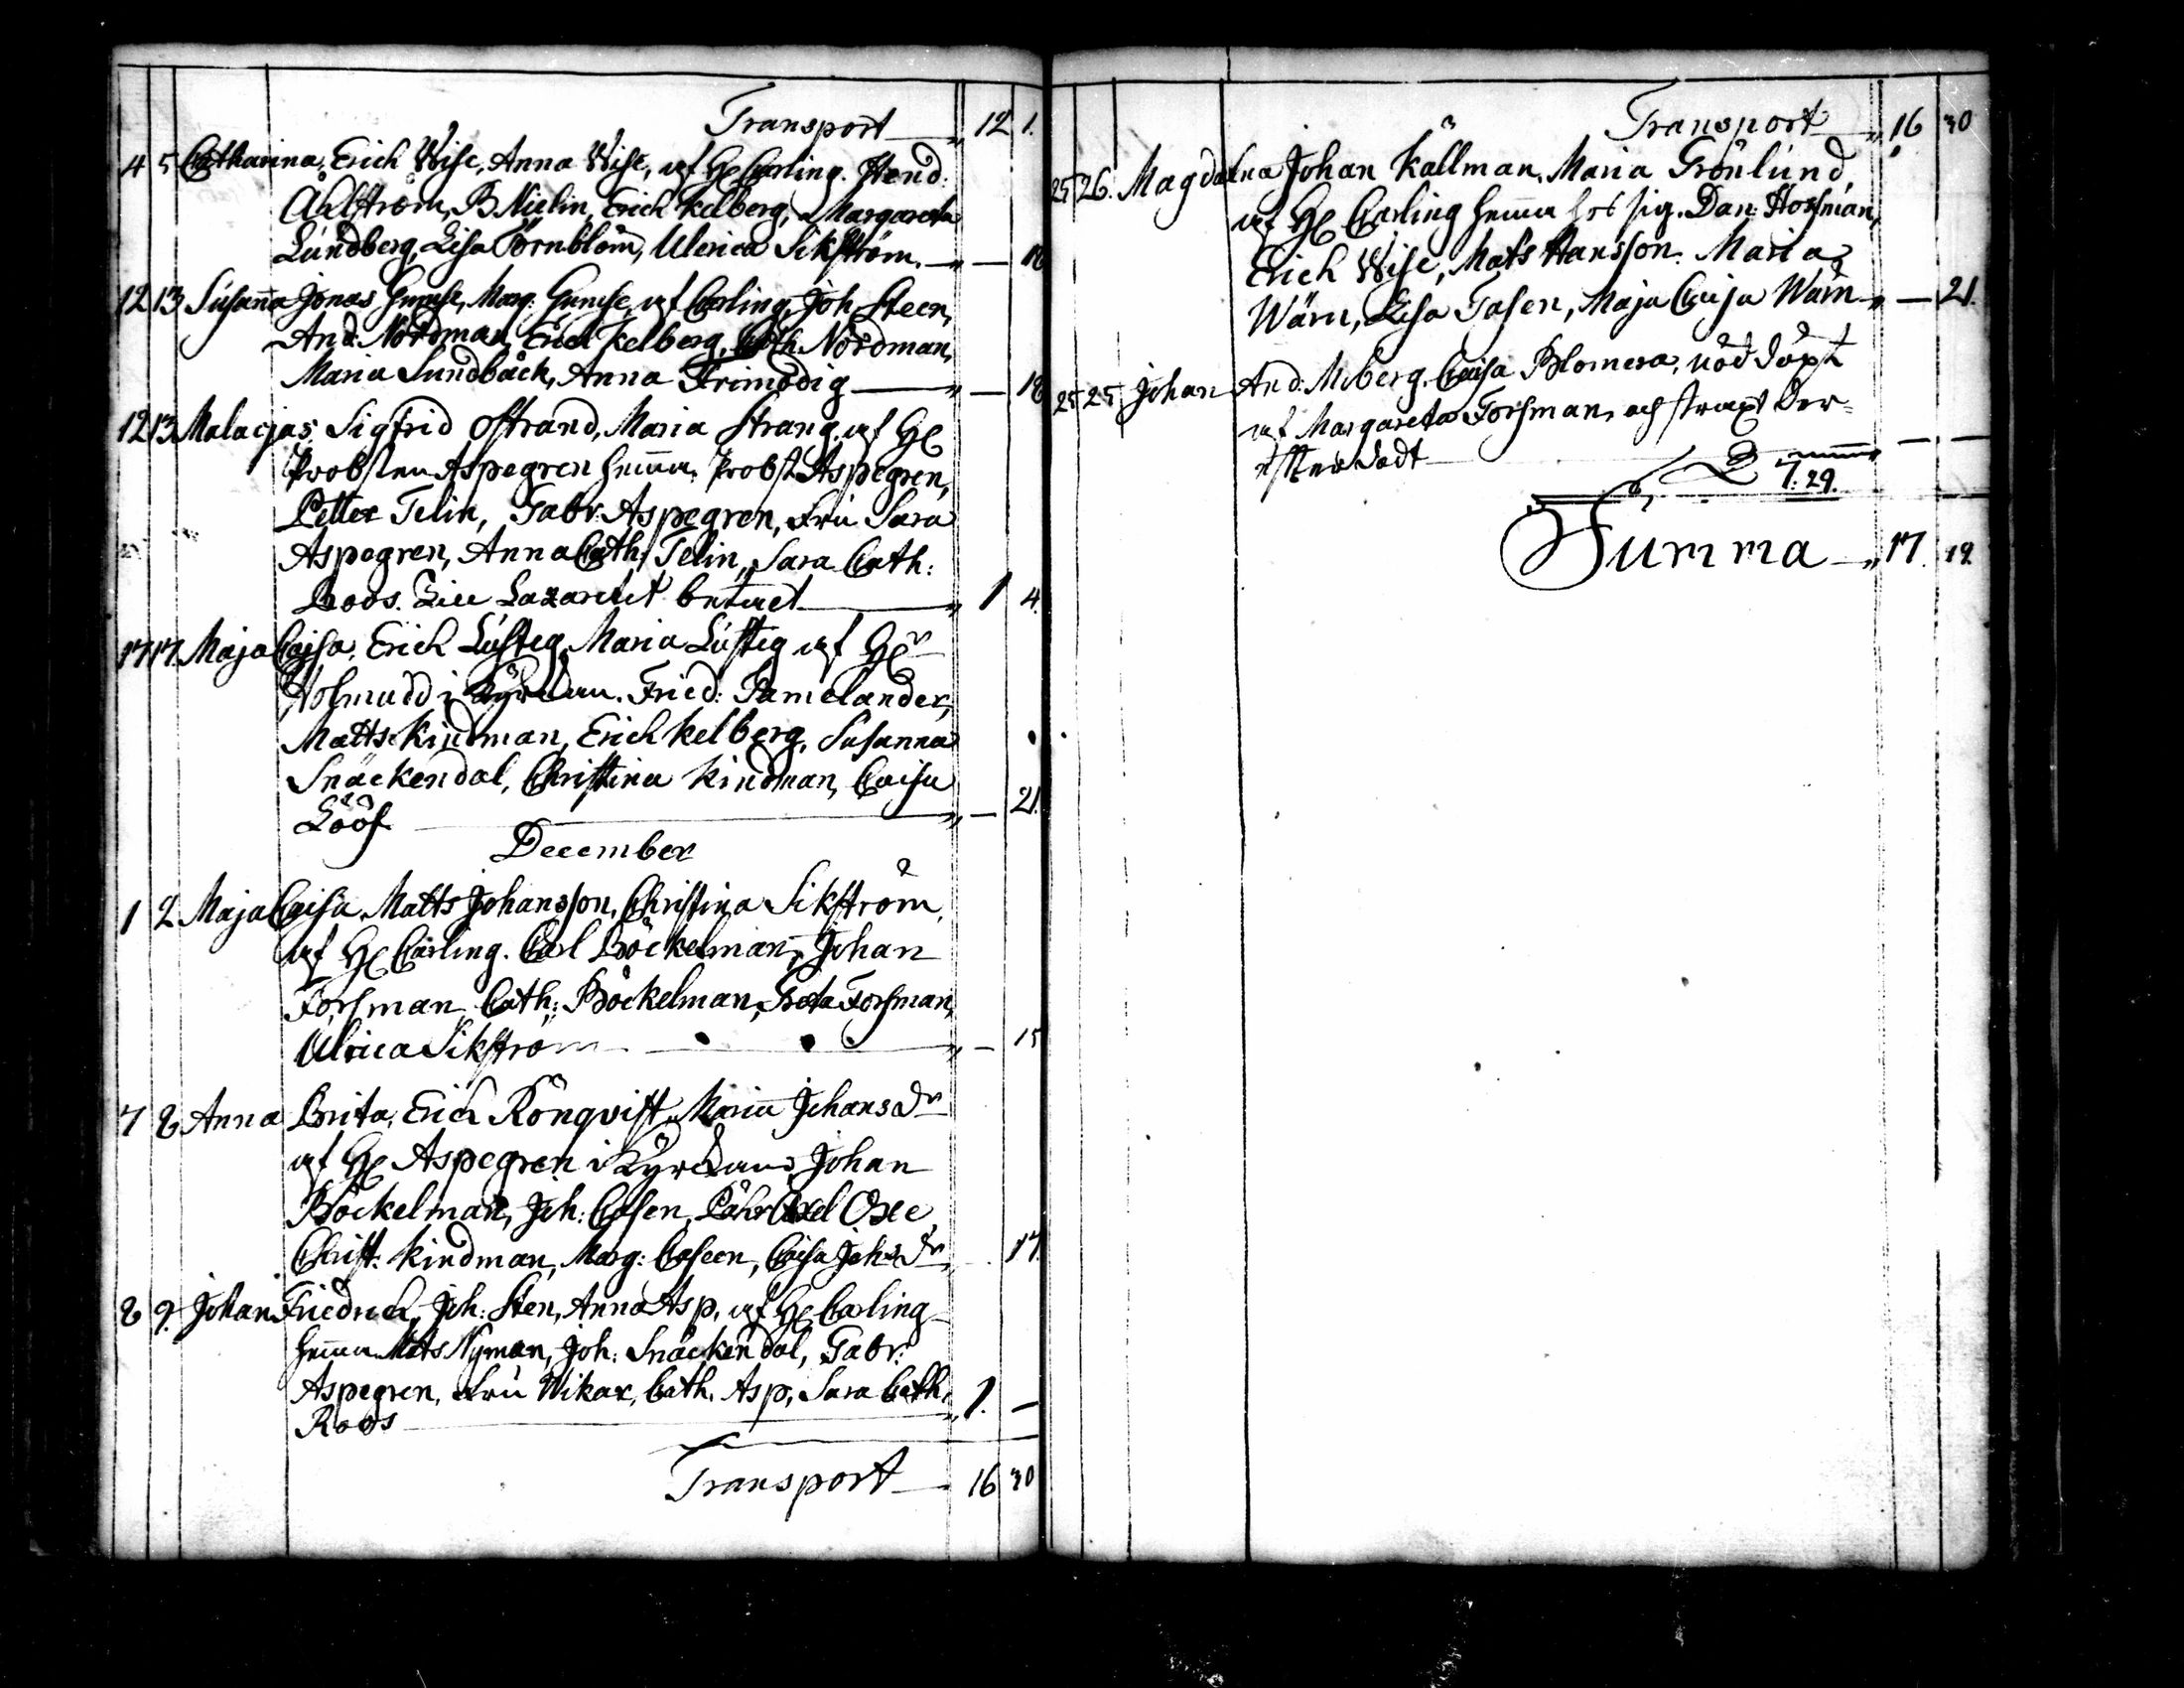 Transport — „ 12 1.
4 5 Catharina, Erich Wise, Anna Wise, af H Carling. Hend:
Åhlström, B Mielin, Erich Kelberg, Margareta
Lundberg, Lisa Törnblom, Ulerica Sikström. — „ — 18
12 13 Susanna Jonas Marg: af Carling, Joh Steen,
And: Nordman, Erich Kelberg, Cath. Nordman,
Maria Sundbäck, Anna Frimodig — „ — 18
12 13 Malacjas, Sigfrid Ostrand, Maria Strang. af H
Probsten Aspegren hemma, Probst Aspegren,
Petter Telin, Gabr: Aspegren, Fru Sara
Aspegren, Anna Cath: Telin, Sara Cath:
Roos. Lazarettet betalet — „ 1 4.
17 17. Maja Caisa, Erich Lustig, Maria Lustig af H
i Kyrckan. Fried: Pamelander,
Matts Kindman, Erich Kelberg, Susanna
Snäckendal, Christina Kindman, Caisa
Lööf — „ — 21.
December
1 2 Maja Caisa, Matts Johansson, Christina Sikström,
af H Carling. Carl Böckelman, Johan
Forsman, Cath: Böckelman, Greta Forsman,
Ulrica Sikström — „ — 15
7 8 Anna Brita, Erich Rönqvist, Maria Johansdr
af H Aspegren i Kyrckan, Johan
Böckelman, Joh: Casen, Pähr Axel Oxe,
Christ: Kindman, Marg: Caseen, Caisa Johsdr „ 17.
8 9. Johan Friedrich, Joh: Sten, Anna Asp, af H Carling
hemma Mats Nyman, Joh: Snäckendal, Gabr:
Aspegren, Fru Wikar, Cath. Asp, Sara Cath.
Roos — „ 1. —
Transport — 16 30
Transport — „ 16 30
25 26. Magdalena Johan Källman, Maria Grönlund,
af H Carling hemma hos sig. Dan: Hofman,
Erich Wise, Mats Hansson. Maria
Wärn, Lisa Tasen, Maja Caisa Wärn „ — 21.
25 25. Johan And: Moberg, Caisa Blomera, nöd döpt
af Margareta Forsman, och straxt der-
efter dödt — „ — —
7:29.
Summa — „ 17. 19